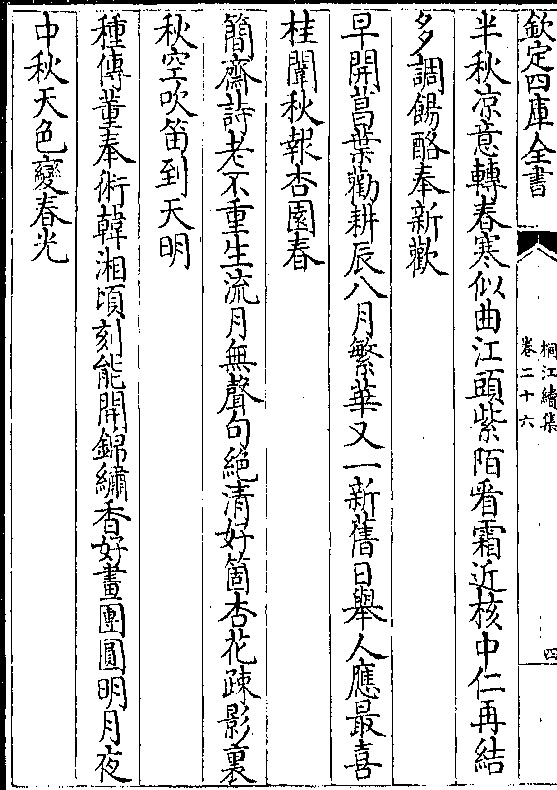 欽定四庫全書
桐江續集
卷二十六
四
半秋凉意轉春寒似曲江頭紫陌看霜近核中仁再結
多調餳酪奉新歡
早開菖葉勸耕辰八月繁華又一新舊日舉人應最喜
桂闈秋報杏園春
簡齋詩老不重生流月無聲句絶清好箇杏花疎影裏
秋空吹笛到天明
種傳董奉術韓湘頃刻能開錦繡香好畫團圓明月夜
中秋天色變春光